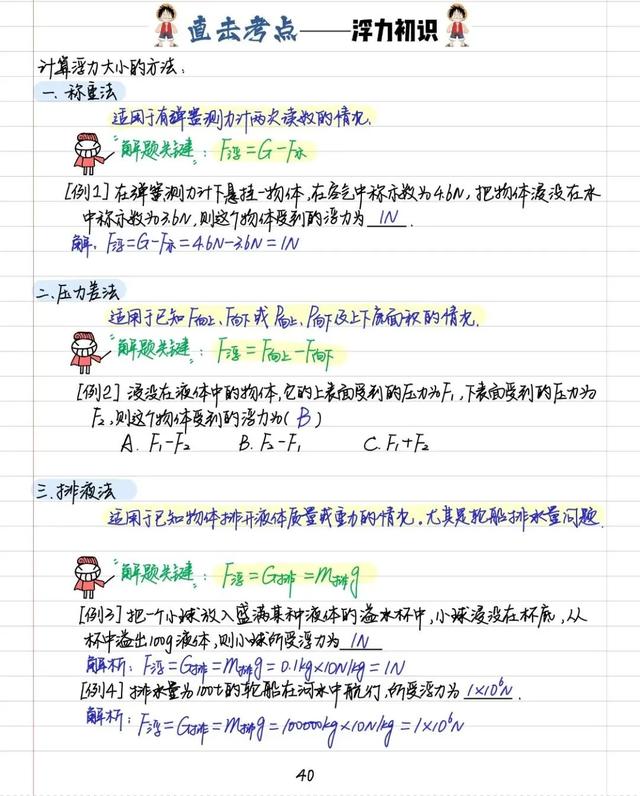 直击考点——浮力初识
计算浮力大小的方法：
一. 称重法
适用于有弹簧测力计两次读数的情况.
解题关键：F浮=G-F示
[例1] 在弹簧测力计下悬挂一物体，在空气中称示数为4.6N，把物体浸没在水
中称示数为3.6N，则这个物体受到的浮力为 1N .
解：F浮=G-F示=4.6N-3.6N=1N
二.压力差法
适用于已知F向上、F向下或P向上、P向下及上下底面积的情况.
解题关键：F浮=F向上-F向下
[例2] 浸没在液体中的物体，它的上表面受到的压力为F₁，下表面受到的压力为
F₂，则这个物体受到的浮力为( B )
A. F₁-F₂ B. F₂-F₁ C. F₁+F₂
三.排液法
适用于已知物体排开液体质量或重力的情况。尤其是轮船排水量问题.
解题关键：F浮=G排=m排g
[例3] 把一个小球放入盛满某种液体的溢水杯中，小球浸没在杯底，从
杯中溢出100g液体，则小球所受浮力为 1N
解析：F浮=G排=m排g=0.1kg×10N/kg=1N
[例4] 排水量为100t的轮船在河水中航行，所受浮力为 1×10⁶N .
解析：F浮=G排=m排g=100000kg×10N/kg=1×10⁶N
40